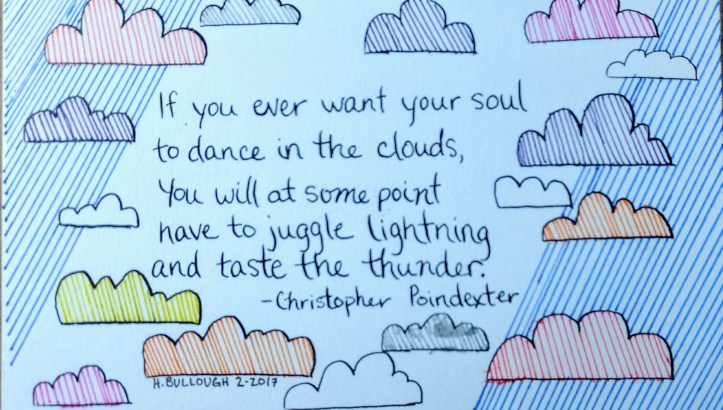 If you ever want your soul
to dance in the clouds,
You will at some point
have to juggle lightning
and taste the thunder.
-Christopher Poindexter
H. BULLOUGH 2-2017